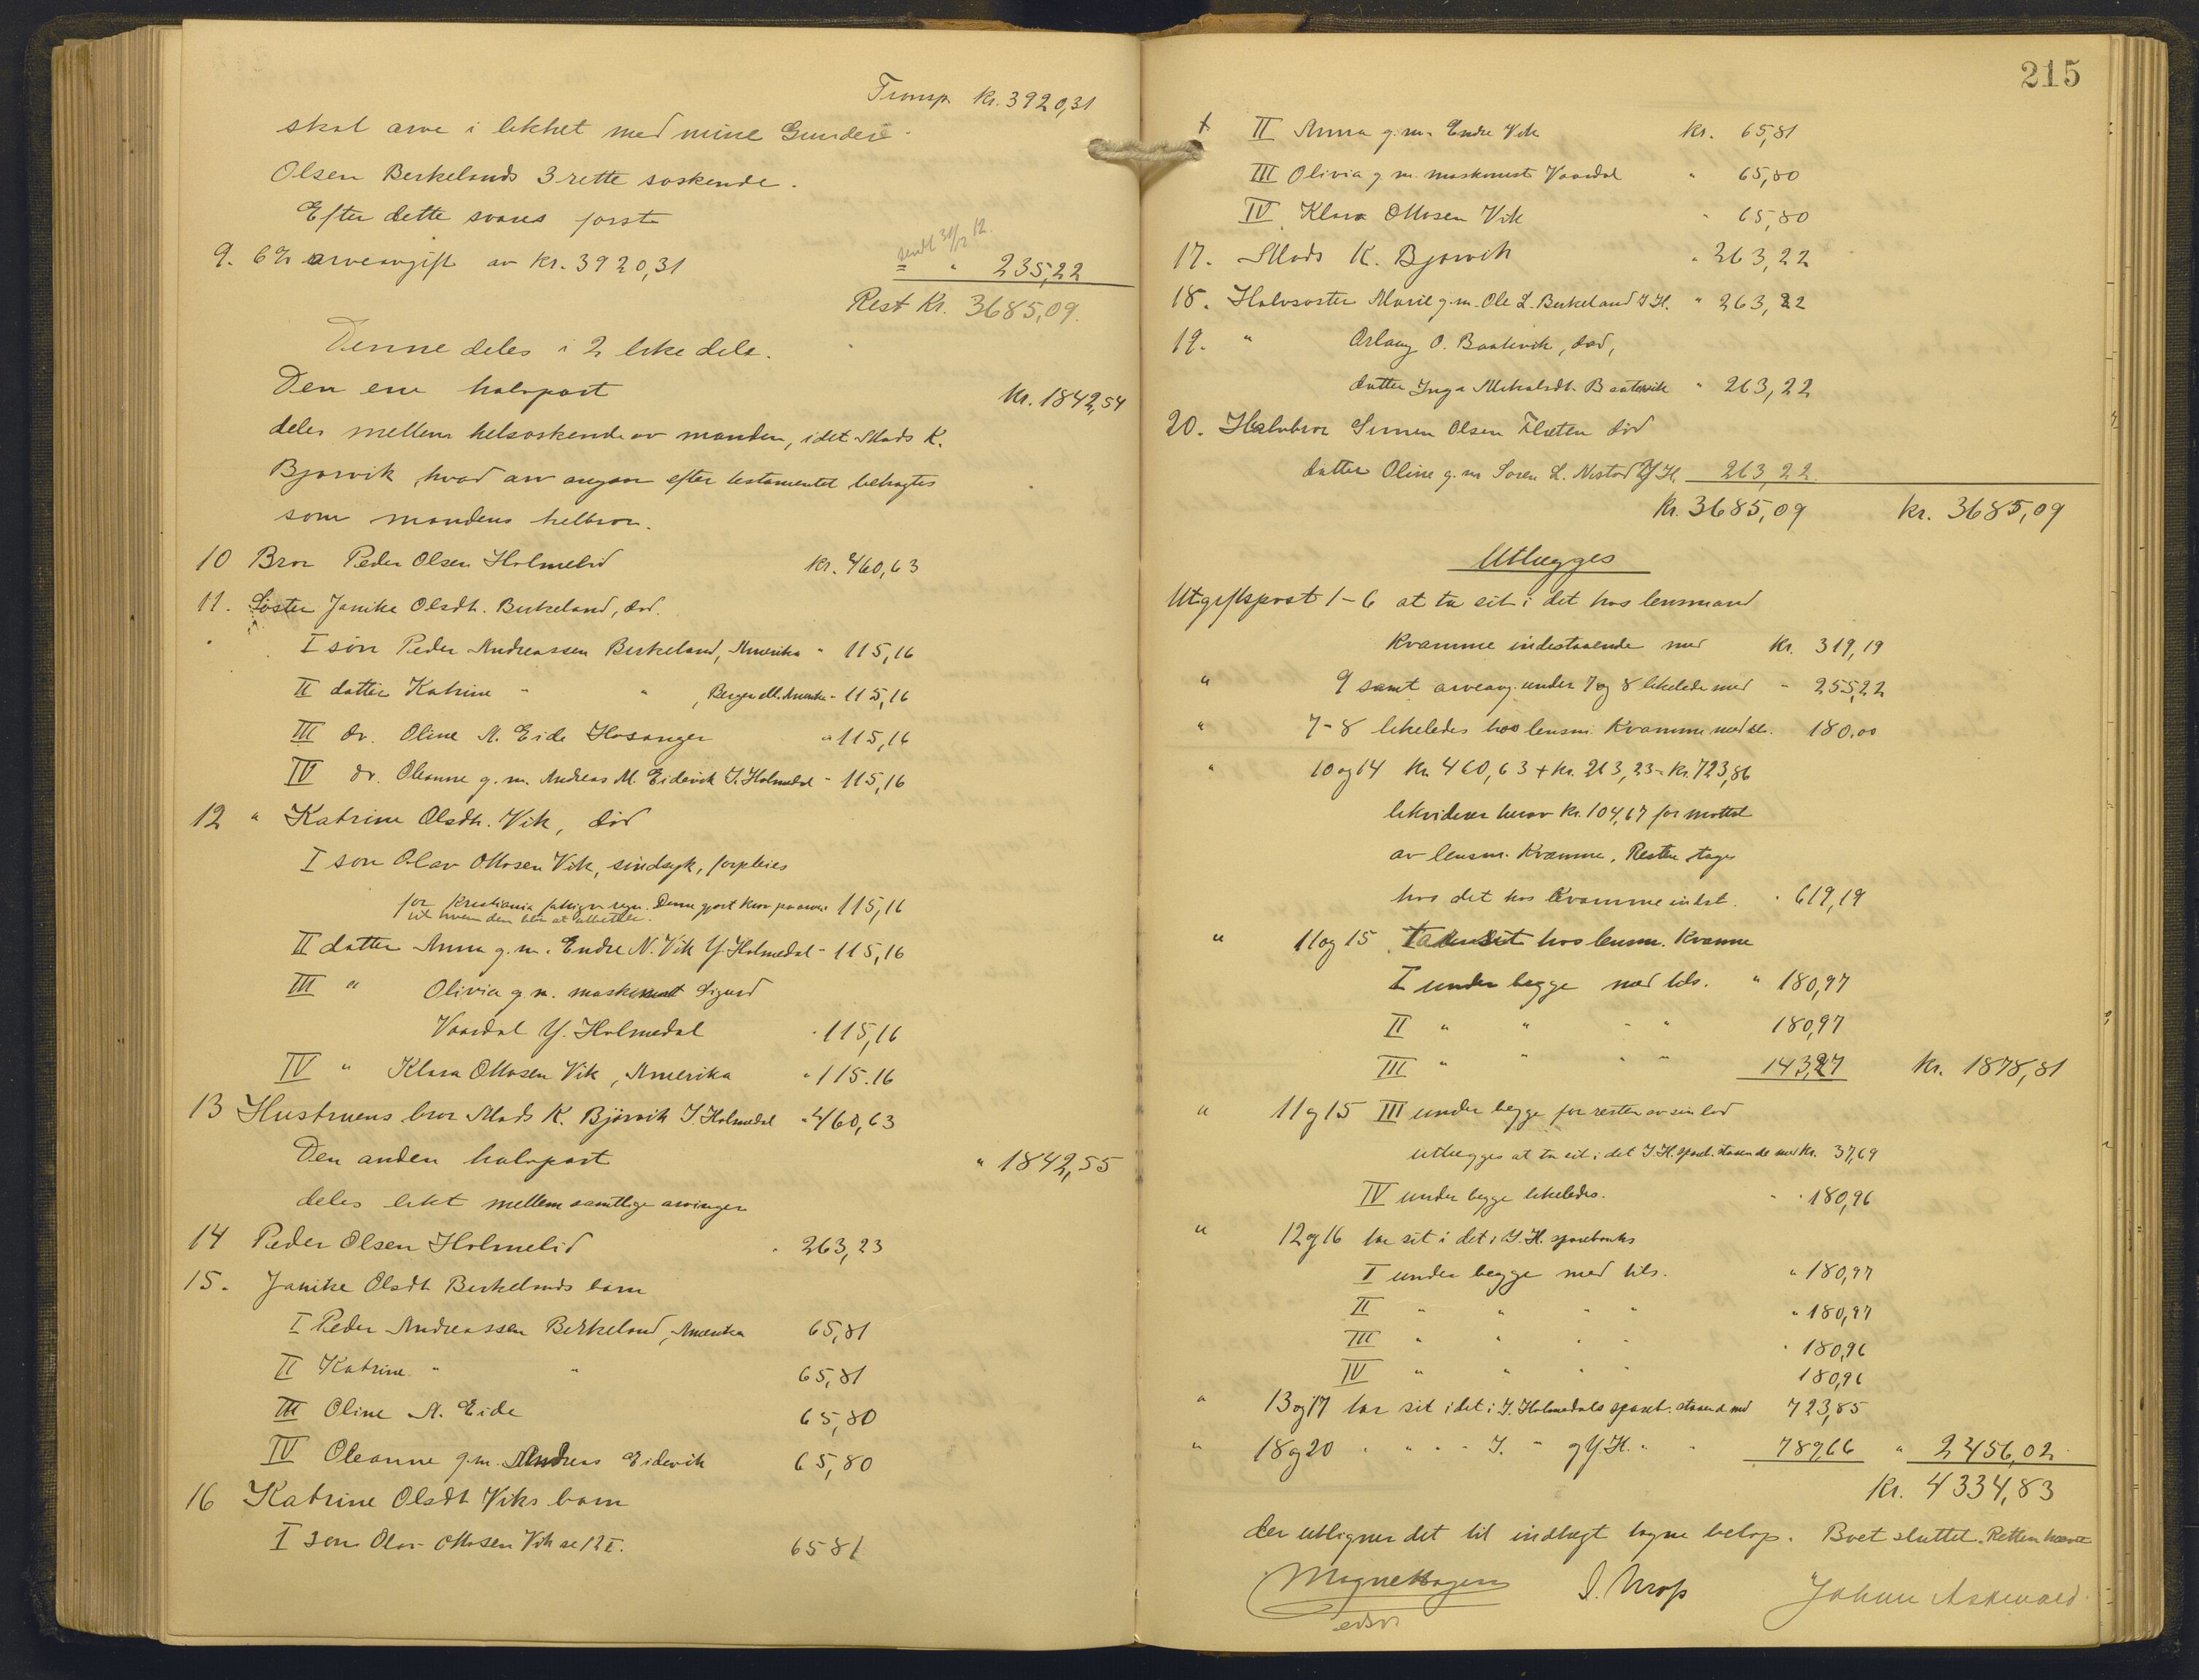 Transp. Kr. 3920,31
skal arve i likhet med mine Gunder
Olsen Berkelands 3 rette søskende.
Efter dette svares først
sendt 31/12 12.
9. 6% arveavgift av Kr. 3920,31 " 235,22
Rest Kr. 3685,09.
Denne deles i 2 like dele.
Den ene halvpart Kr. 1842,54
deles mellem helsøskende av manden, idet Mads K.
Bjørvik, hvad arv angaar efter testamentet betragtes
som mandens helbror.
10 Bror Peder Olsen Holmelid Kr. 460,63
11. Søster Janike Olsdt. Birkeland, død.
I søn Peder Andreassen Birkeland, Amerika " 115,16
II datter Katrine " " , Bergen ell. Amerika " 115,16
III do. Oline A. Eide Hosanger " 115,16
IV do. Oleanne g.m. Andreas M. Eidevik I. Holmedal " 115,16
12 " Katrine Olsdtr. Vik, død
I søn Olav Ottosen Vik, sindsyk, forpleies
for Kristiania fattigv. regn. Denne post 115,16
til hvem den blir at utbetale.
II datter Anna g.m. Endre N. Vik Y. Holmedal " 115,16
III " Olivia g.m. maskinist Sigurd
Vaardal Y. Holmedal " 115,16
IV " Klara Ottosen Vik, Amerika " 115.16
13 Hustruens bror Mads K. Bjørvik I. Holmedal " 460,63
Den anden halvpart " 1842,55
deles likt mellem samtlige arvinger
14 Peder Olsen Holmelid " 263,23
15. Janike Olsdt Berkelands barn
I Peder Andreassen Birkeland, Amerika 65,81
II Katrine " " 65,81
III Oline A. Eide 65,80
IV Oleanne g.m. Andreas Eidevik 65,80
16 Katrine Olsdt Viks barn
I søn Olav Ottosen Vik se 12 I. 65 81
215
II Anna g.m. Endre Vik Kr. 65,81
III Olivia g.m. maskinist Vaardal " 65,80
IV Klara Ottosen Vik " 65,80
17. Mads K. Bjørvik " 263,22
18. Halvsøster Marie g.m. Ole L. Birkeland I.H. " 263,22
19. " O. Baatevik, død,
datter Inga Mikalsdt. Baatevik " 263,22
20. Halvbror Simen Olsen Flæten død
datter Oline g.m. Søren L. Nistad Y.H. 263,22.
Kr. 3685,09 Kr. 3685,09
Utlægges
Utgiftspost 1-6 at ta sit i det hos lensmand
Kvamme indestaaende med Kr. 319,19
" 9 samt arveavg. under 7 og 8 likeledes med " 255,22
" 7-8 likeledes hos lensm. Kvamme med tils. 180.00
" 10 og 14 Kr. 460,63 + Kr. 263,23 = Kr. 723,86
likviderer herav Kr. 104,67 for mottat
av lensm. Kvamme. Resten tages
hos det hos Kvamme indest. " 619,19
" 11 og 15 Tar sit hos lensm. Kvamme
I under begge med tils. " 180,97
II " " " " 180,97
III " " " " 143,27 Kr. 1878,81
" 11 og 15 III under begge for resten av sin lod
utlægges at ta sit i det I.H. spareb. staaende med Kr. 37,69
IV under begge likeledes. " " 180,96
" 12 og 16 tar sit i det i I.H. sparebank
I under begge med tils. " 180,97
II " " " " " 180,97
III " " " " " 180,96
IV " " " " 180,96
" 13 og 17 tar sit i det i I. Holmedals spareb. staaend med 723,85
" 18 og 20 " " " " I. " og Y.H. " " 789,66 " 2456,02
Kr. 4334,83
der utligner det til indtægt tagne beløp. Boet sluttet. Retten hævet
Magne Hagen
edsv.
Johan Askevold